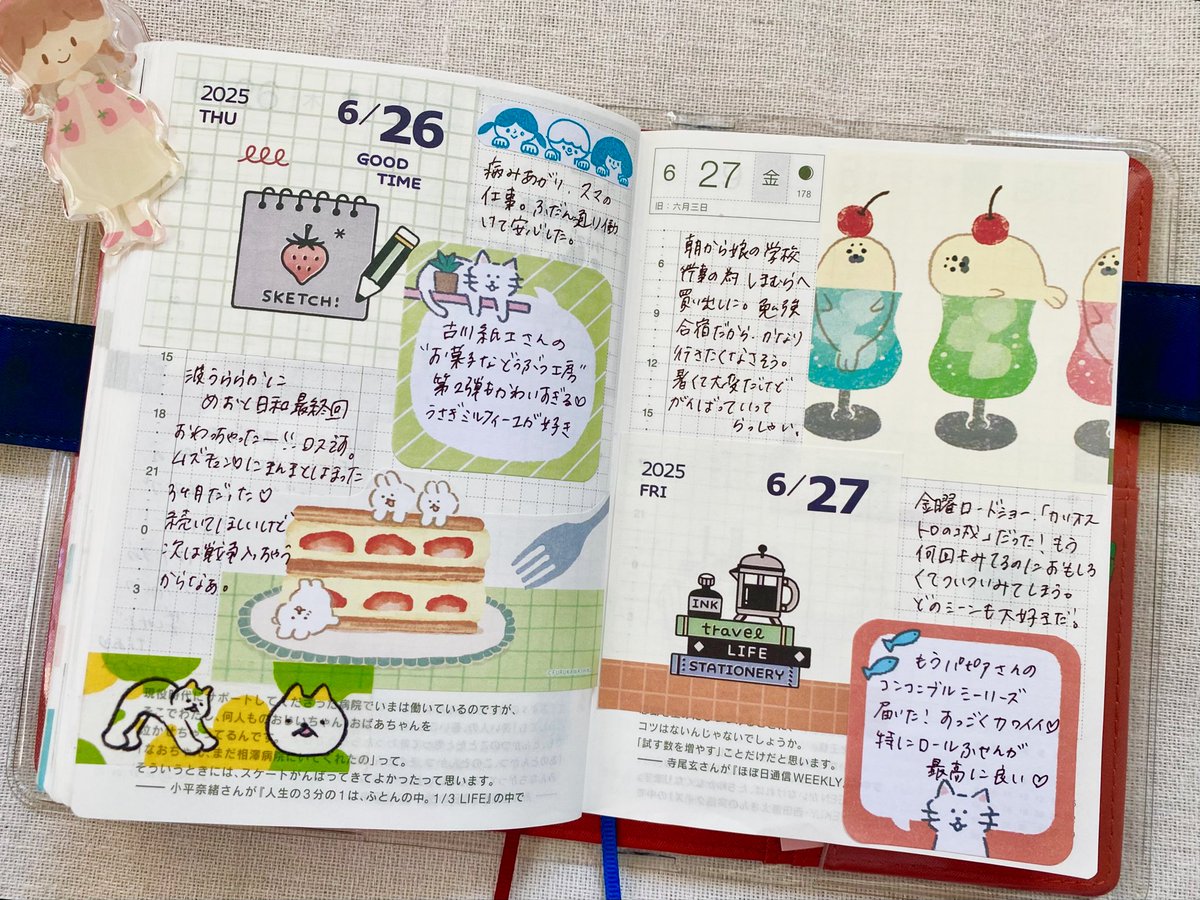 2025
THU
6/26
GOOD
TIME
病みあがり、スマの
仕事。ふだん通り働
けて安心した。
SKETCH!
古川紙工さんの
"お菓子などうぶつ工房"
第2弾もかわいすぎる♡
うさぎミルフィーユが好き
15
18
21
0
3
波うららかに
めおと日和最終回
おわっちゃったー!! ロス
ムズキュンにまんまとはまった
3ヶ月だった♡
続いてほしいけど
次は戦争入っちゃう
からなぁ。
現役時代にサポートしてくださった病院でいまは働いているのですが、
何人ものおじいちゃん、おばあちゃんを
まだ相澤病院にいてくれたの」って。
そういうときには、スケートがんばってきてよかったって思います。
—— 小平奈緒さんが『人生の3分の1は、ふとんの中。1/3 LIFE』の中で
6 27 金
178
旧:六月三日
6
9
12
15
朝から娘の学校
行事の為 しまむらへ
買い出しに。勉強
合宿だから、かなり
行きたくなさそう。
暑くて大変だけど
がんばっていって
らっしゃい。
2025
FRI
6/27
INK
travel
LIFE
STATIONERY
金曜ロードショー、「カリオス
トロの城」だった!もう
何回もみてるのにおもしろ
くてついついみてしまう。
どのシーンも大好きだ。
もうパピアさんの
コンコンブルシーリーズ
届いた! すっごくカワイイ♡
特にロールふせんが
最高に良い♡
コツはないんじゃないでしょうか。
「試す数を増やす」ことだけだと思います。
—— 寺尾玄さんが『ほぼ日通信WEEKLY』